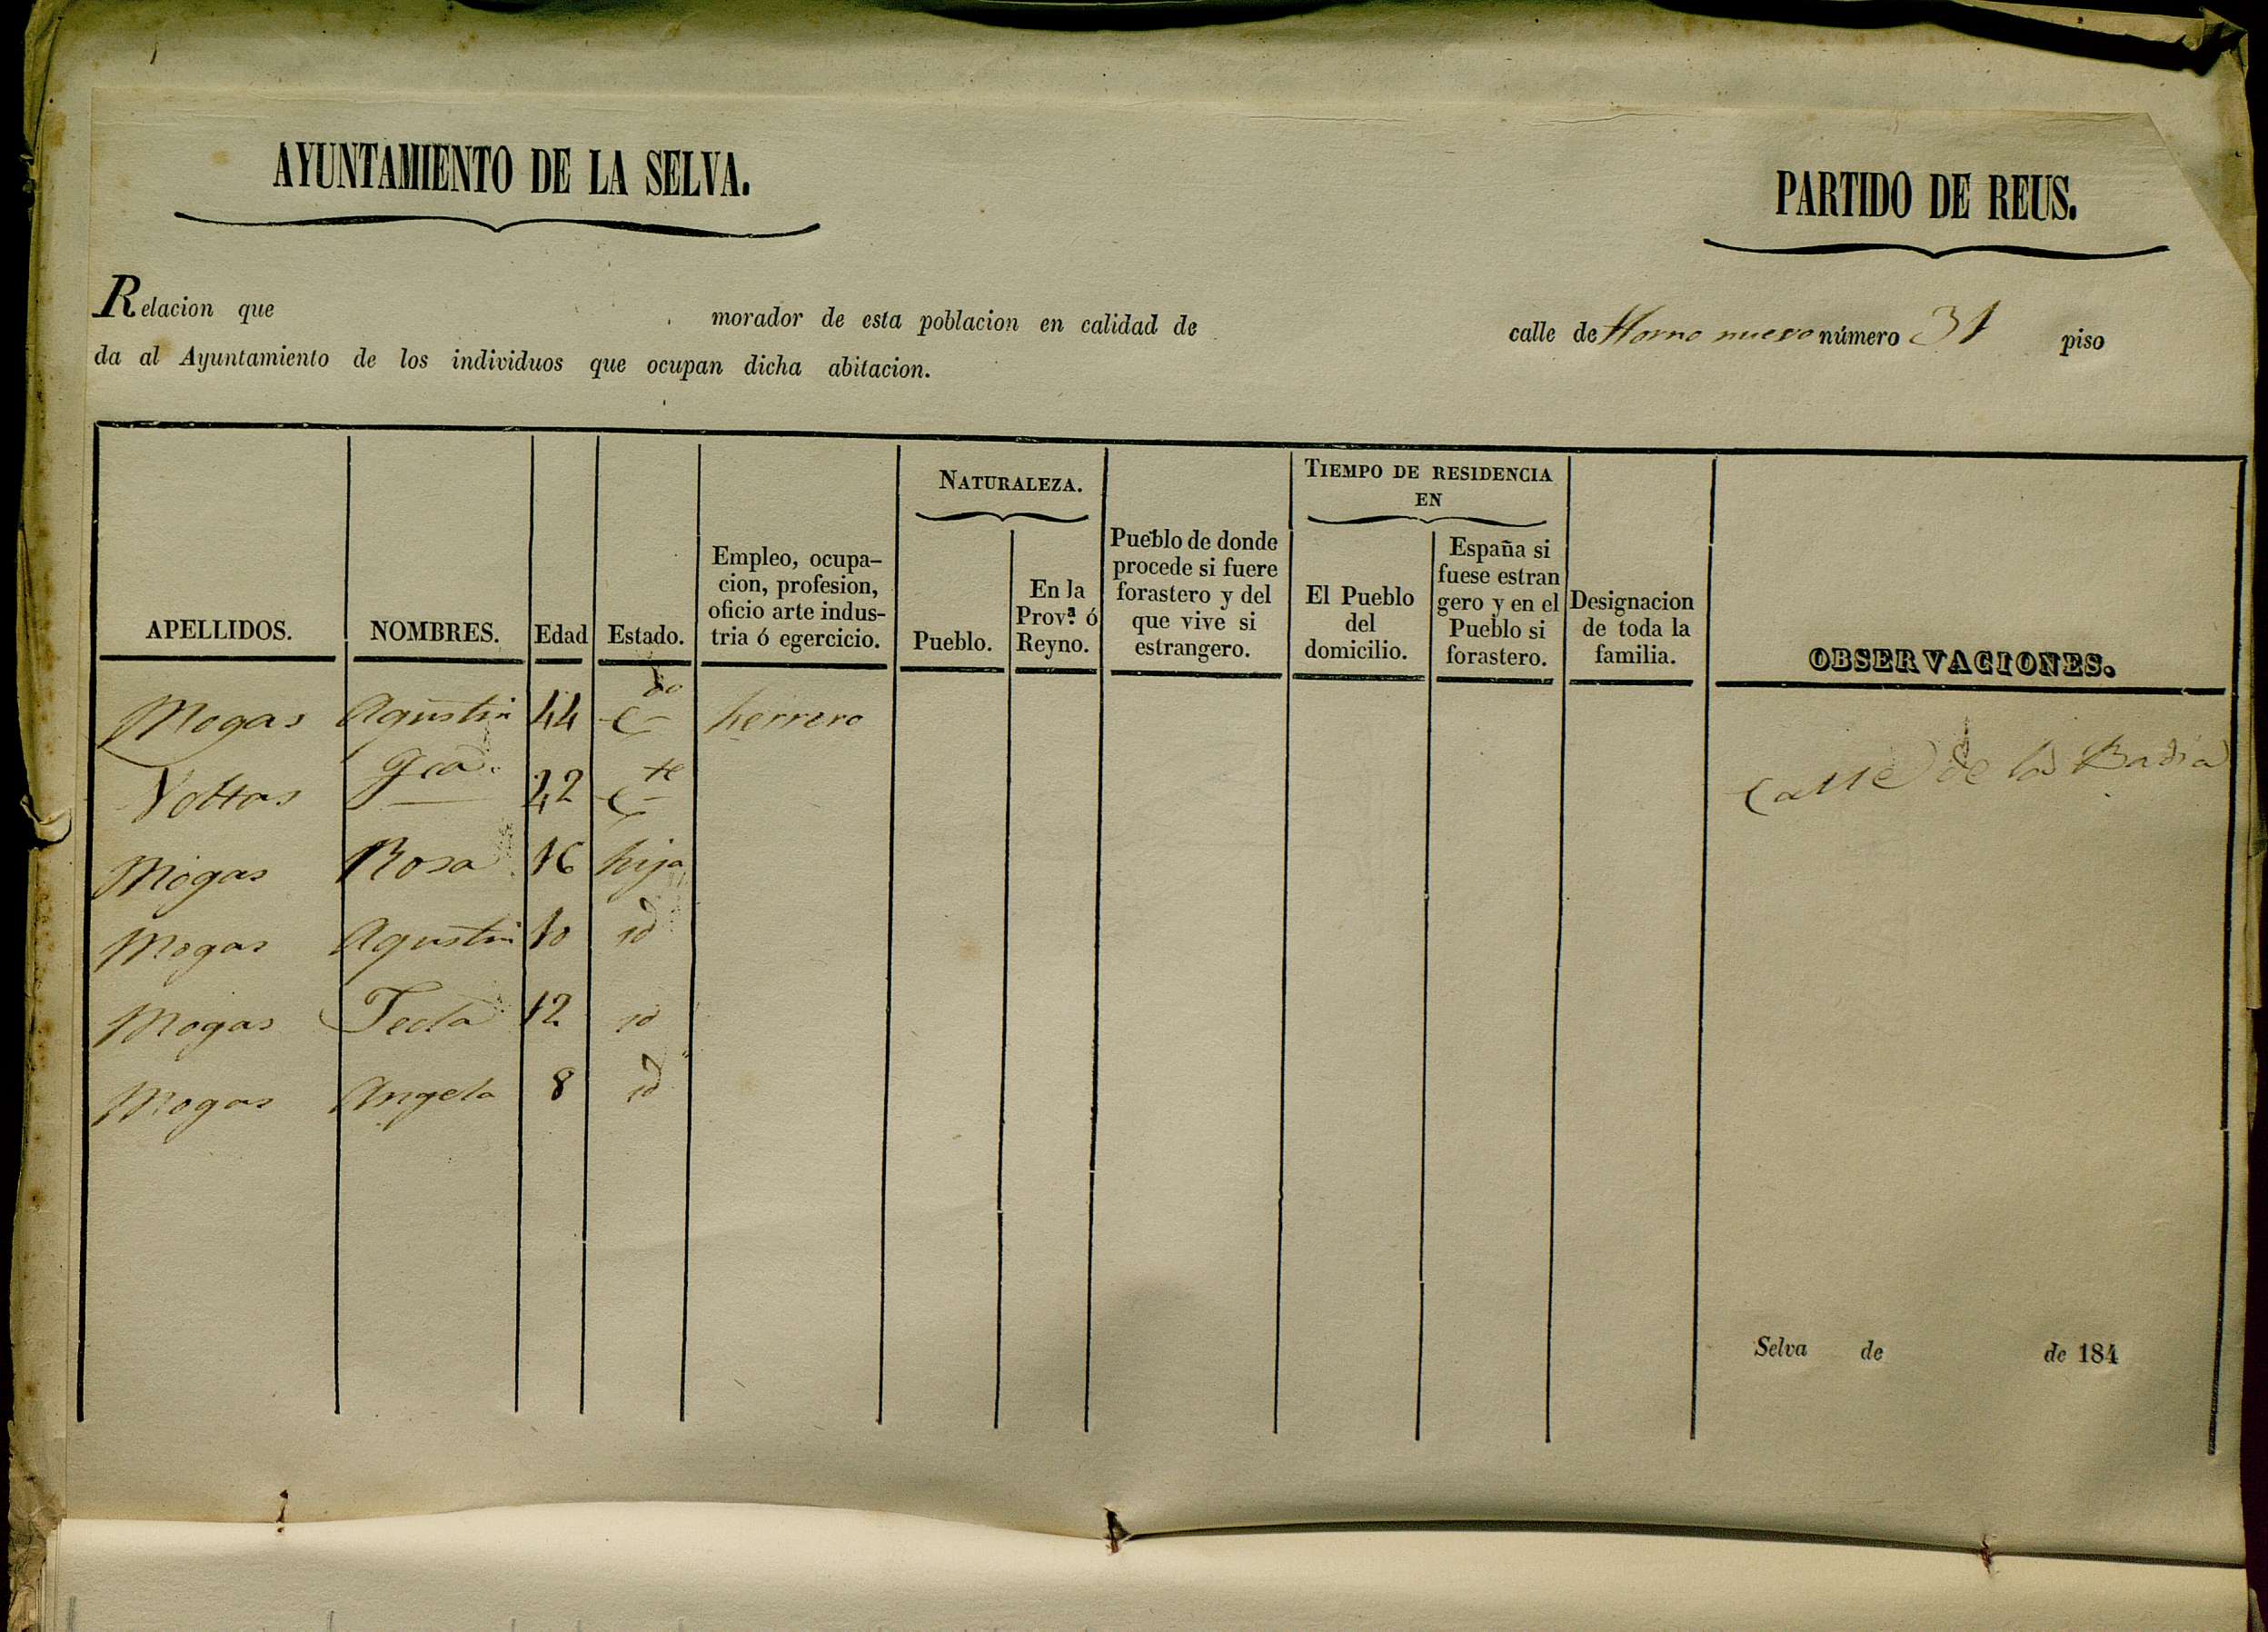 AYUNTAMIENTO DE LA SELVA.
PARTIDO DE REUS.
Relacion que morador de esta poblacion en calidad de calle de Horno nuevo número 31 piso
da al Ayuntamiento de los individuos que ocupan dicha abitacion.
APELLIDOS.
NOMBRES.
Edad
Estado.
Empleo, ocupa-
cion, profesion,
oficio arte indus-
tria ó egercicio.
NATURALEZA.
Pueblo.
En la
Prov.ª ó
Reyno.
Pueblo de donde
procede si fuere
forastero y del
que vive si
estrangero.
TIEMPO DE RESIDENCIA
EN
El Pueblo
del
domicilio.
España si
fuese estran
gero y en el
Pueblo si
forastero.
Designacion
de toda la
familia.
OBSERVACIONES.
Mogas Agustin 44 C.do herrero
Voltas 42 C.te Calle de la Badia
Mogas Rosa 16 hija
Mogas Agustin 10 id
Mogas Tecla 12 id
Mogas Angela 8 id
Selva de de 184